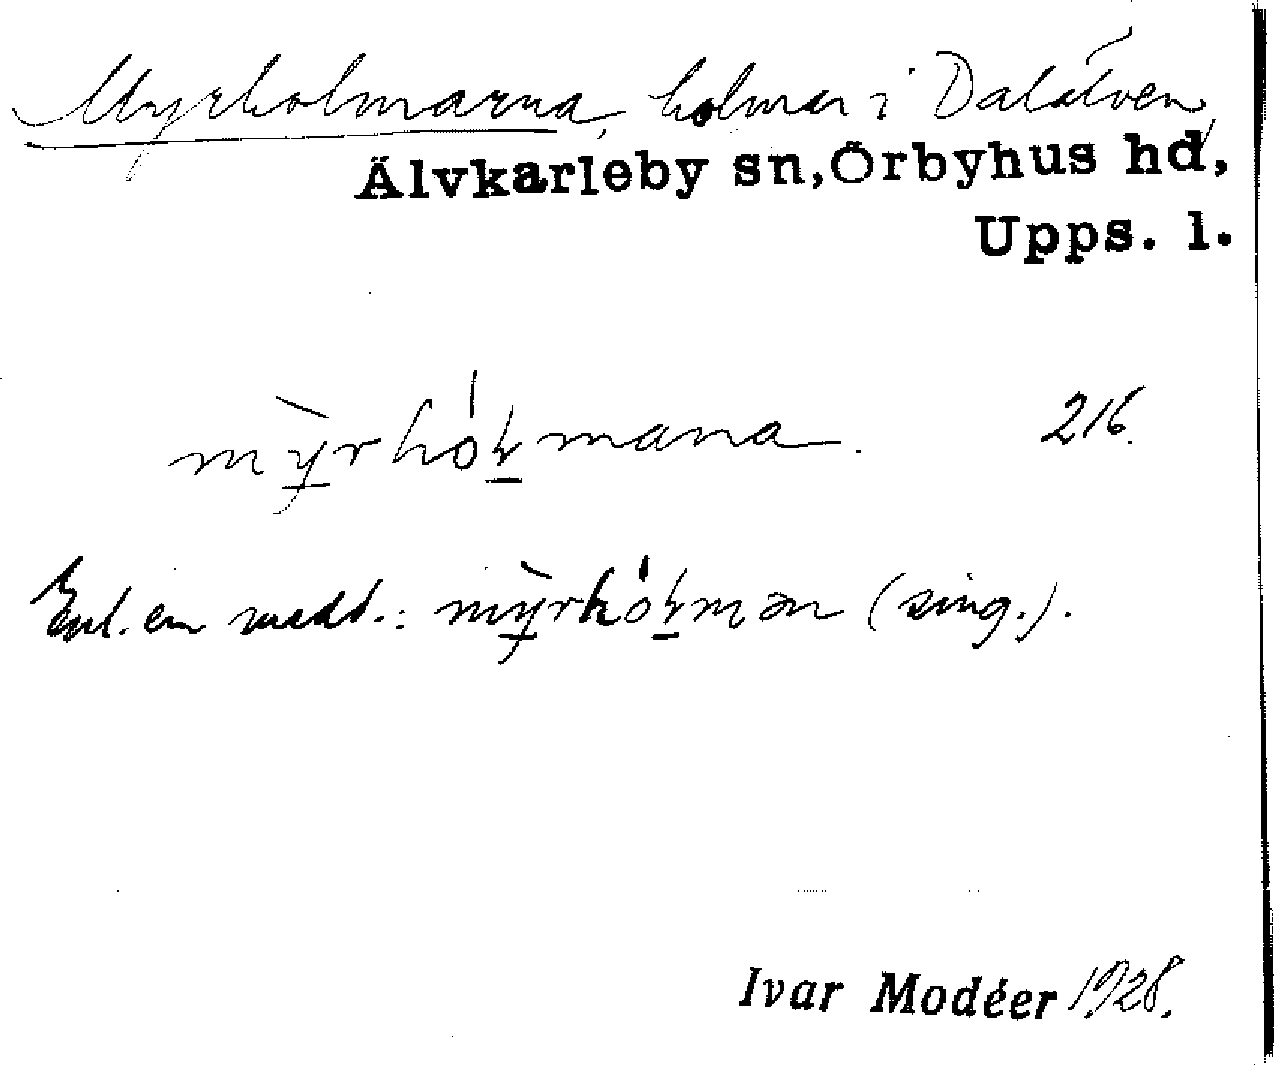 Myrholmarna, holmar i Dalälven,
Älvkarleby sn, Örbyhus hd,
Upps. l.
mỳrhóɫmana. 216.
Enl. en medd.: mỳrhóɫmən (sing.).
Ivar Modéer 1928.